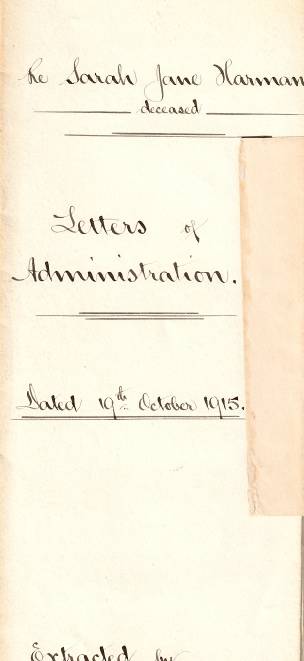 Re Sarah Jane Harman
deceased
Letters of
Administration.
Dated 19th October 1915.
Extracted by